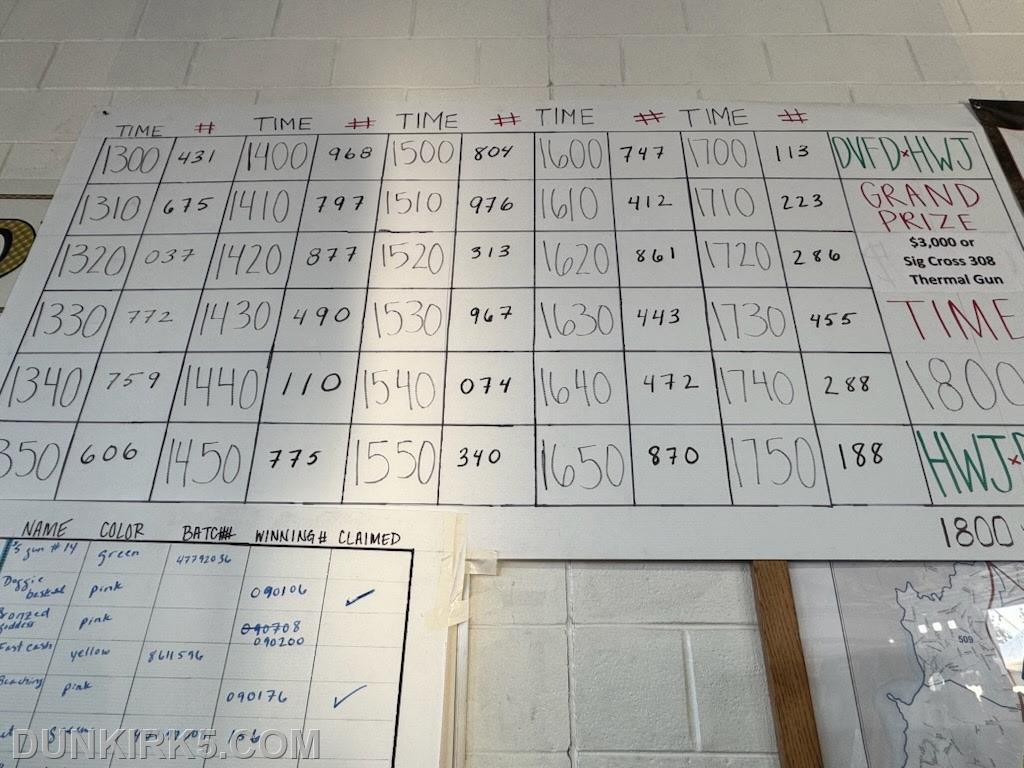 TIME # TIME # TIME # TIME # TIME #
1300 431 1400 968 1500 804 1600 747 1700 113 DVFD*HWJ
1310 675 1410 797 1510 976 1610 412 1710 223 GRAND
PRIZE
1320 037 1420 877 1520 313 1620 861 1720 286 $3,000 or
Sig Cross 308
Thermal Gun
1330 772 1430 490 1530 967 1630 443 1730 455 TIME
1340 759 1440 110 1540 074 1640 472 1740 288 1800
350 606 1450 775 1550 340 1650 870 1750 188 HWJ*
1800
NAME COLOR BATCH# WINNING# CLAIMED
gun #14 green 47792036
Doggie
basket pink 090106 ✓
Bronzed
goddess pink 090708
090200
Fast cash yellow 8611596
Beaching pink 090176 ✓
156
509
DUNKIRK5.COM